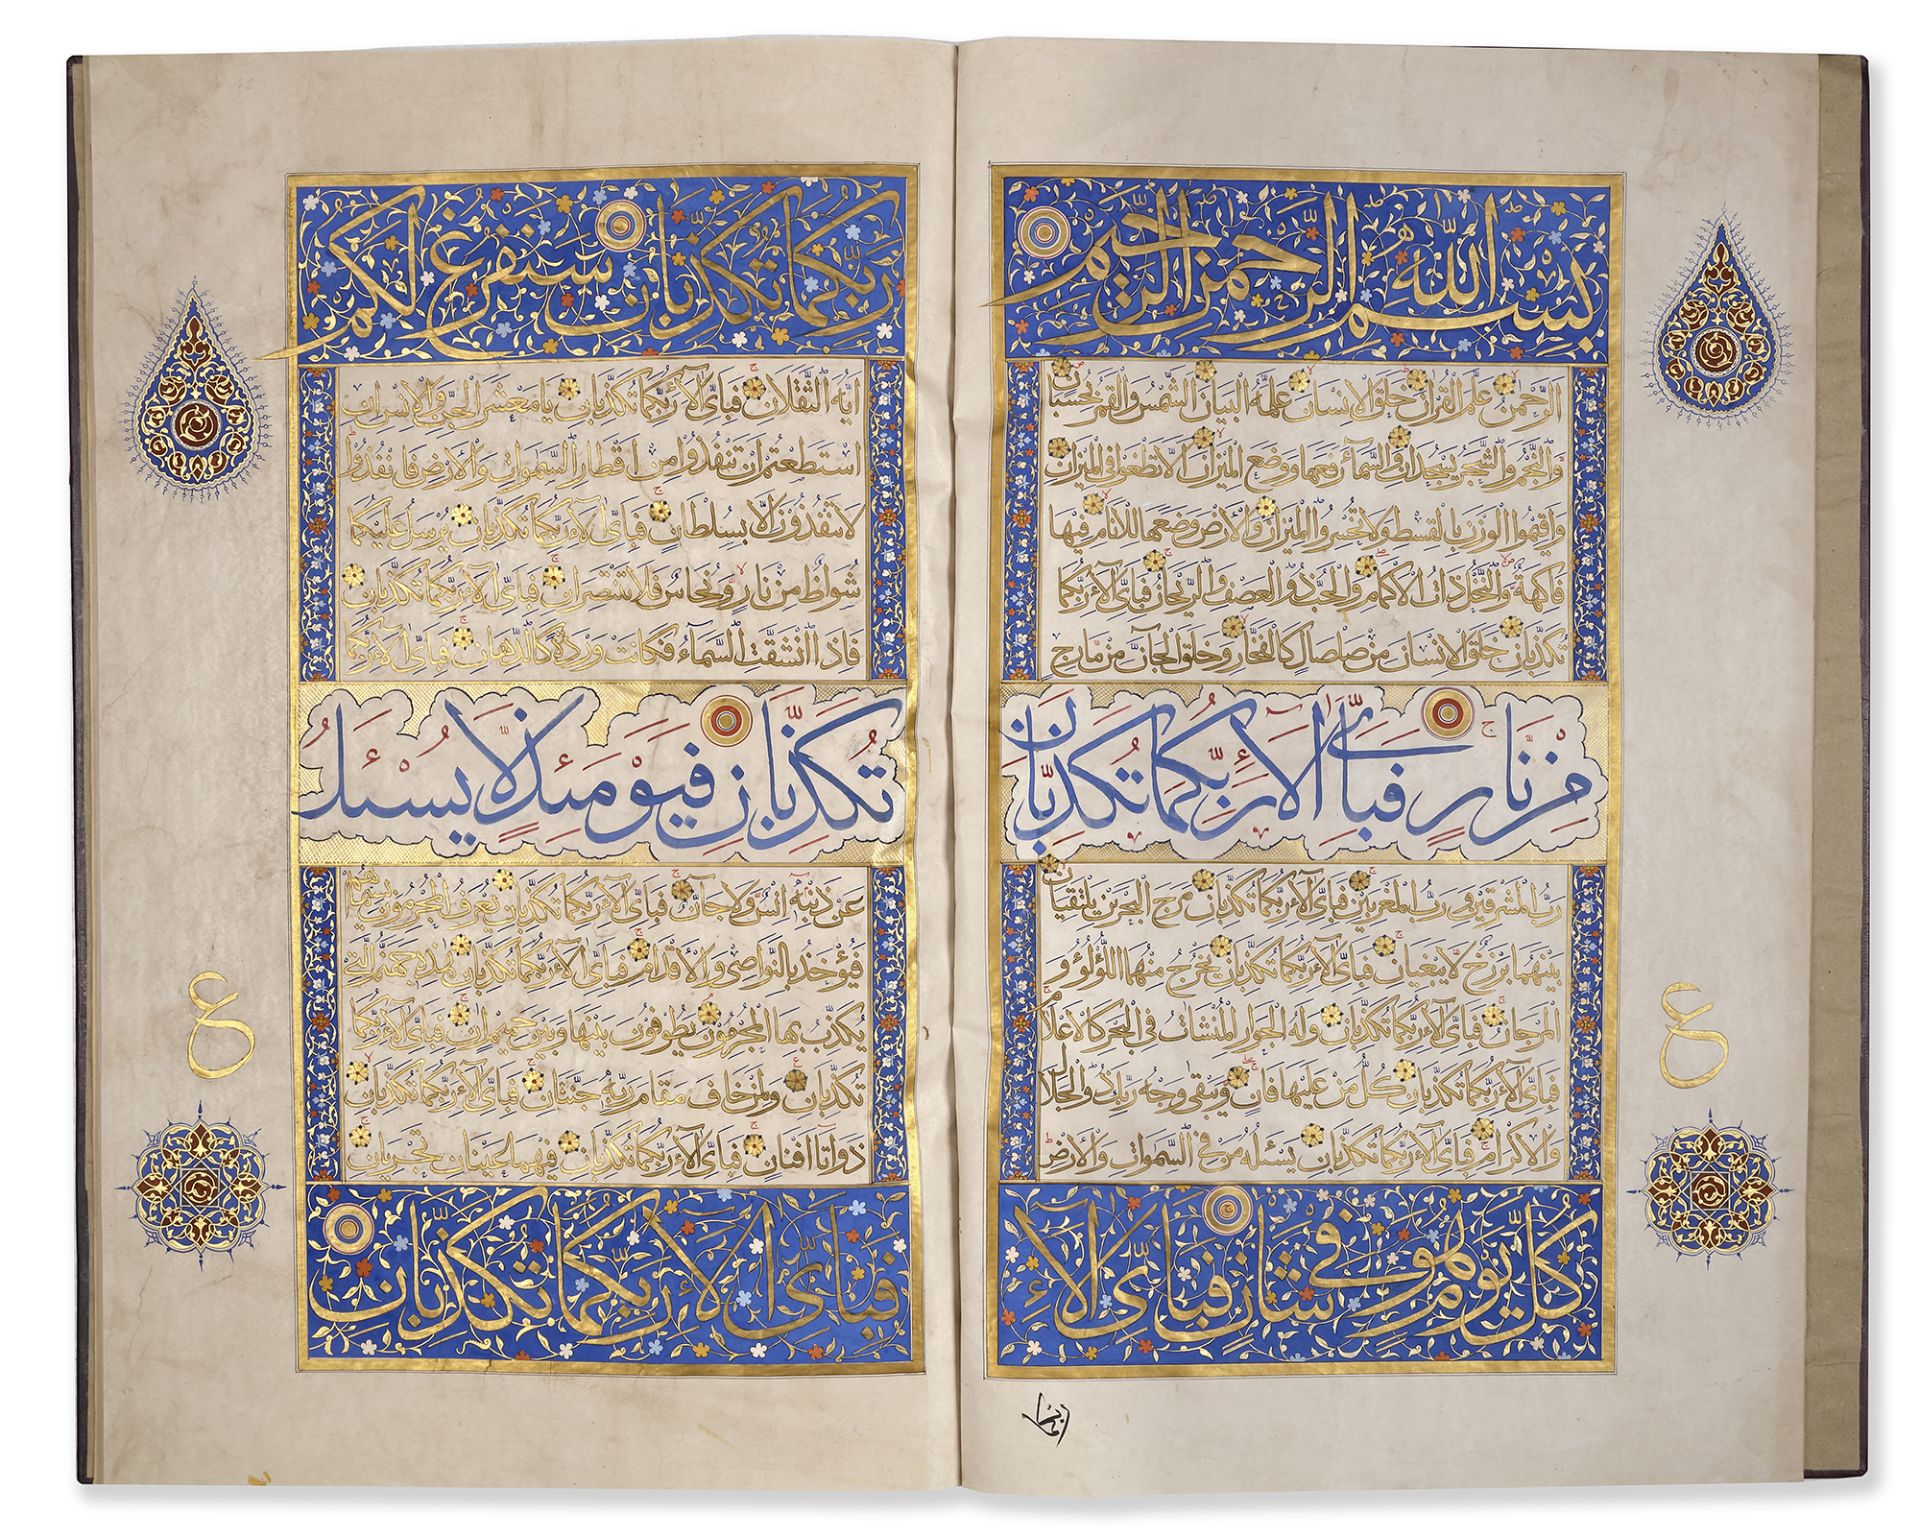 بسم الله الرحمن الرحيم
الرحمن علم القرآن خلق الانسان علمه البيان الشمس والقمر بحسبان
والنجم والشجر يسجدان والسمآء رفعها ووضع الميزان الا تطغوا في الميزان
واقيموا الوزن بالقسط ولا تخسروا الميزان والارض وضعها للانام فيها
فاكهة والنخل ذات الاكمام والحب ذو العصف والريحان فبأى الآء ربكما
تكذبان خلق الانسان من صلصال كالفخار وخلق الجآن من مارج
من نار فبأى الآء ربكما تكذبان
رب المشرقين ورب المغربين فبأى الآء ربكما تكذبان مرج البحرين يلتقيان
بينهما برزخ لا يبغيان فبأى الآء ربكما تكذبان يخرج منهما اللؤلؤ و
المرجان فبأى الآء ربكما تكذبان وله الجوار المنشات في البحر كالاعلام
فبأى الآء ربكما تكذبان كل من عليها فان ويبقى وجه ربك ذو الجلال
والاكرام فبأى الآء ربكما تكذبان يسئله من في السموات والارض
كل يوم هو في شان فبأى الآء
ع
ربكما تكذبان سنفرغ لكم
ايه الثقلان فبأى الآء ربكما تكذبان يا معشر الجن والانس ان
استطعتم ان تنفذوا من اقطار السموات والارض فانفذوا
لا تنفذون الا بسلطان فبأى الآء ربكما تكذبان يرسل عليكما
شواظ من نار ونحاس فلا تنتصران فبأى الآء ربكما تكذبان
فاذا انشقت السماء فكانت وردة كالدهان فبأى الآء ربكما
تكذبان فيومئذ لا يسئل
عن ذنبه انس ولا جآن فبأى الآء ربكما تكذبان يعرف المجرمون بسيماهم
فيؤخذ بالنواصى والاقدام فبأى الآء ربكما تكذبان هذه جهنم التى
يكذب بها المجرمون يطوفون بينها وبين حميم ان فبأى الآء ربكما
تكذبان ولمن خاف مقام ربه جنتان فبأى الآء ربكما تكذبان
ذواتا افنان فبأى الآء ربكما تكذبان فيهما عينان تجريان
فبأى الآء ربكما تكذبان
ع